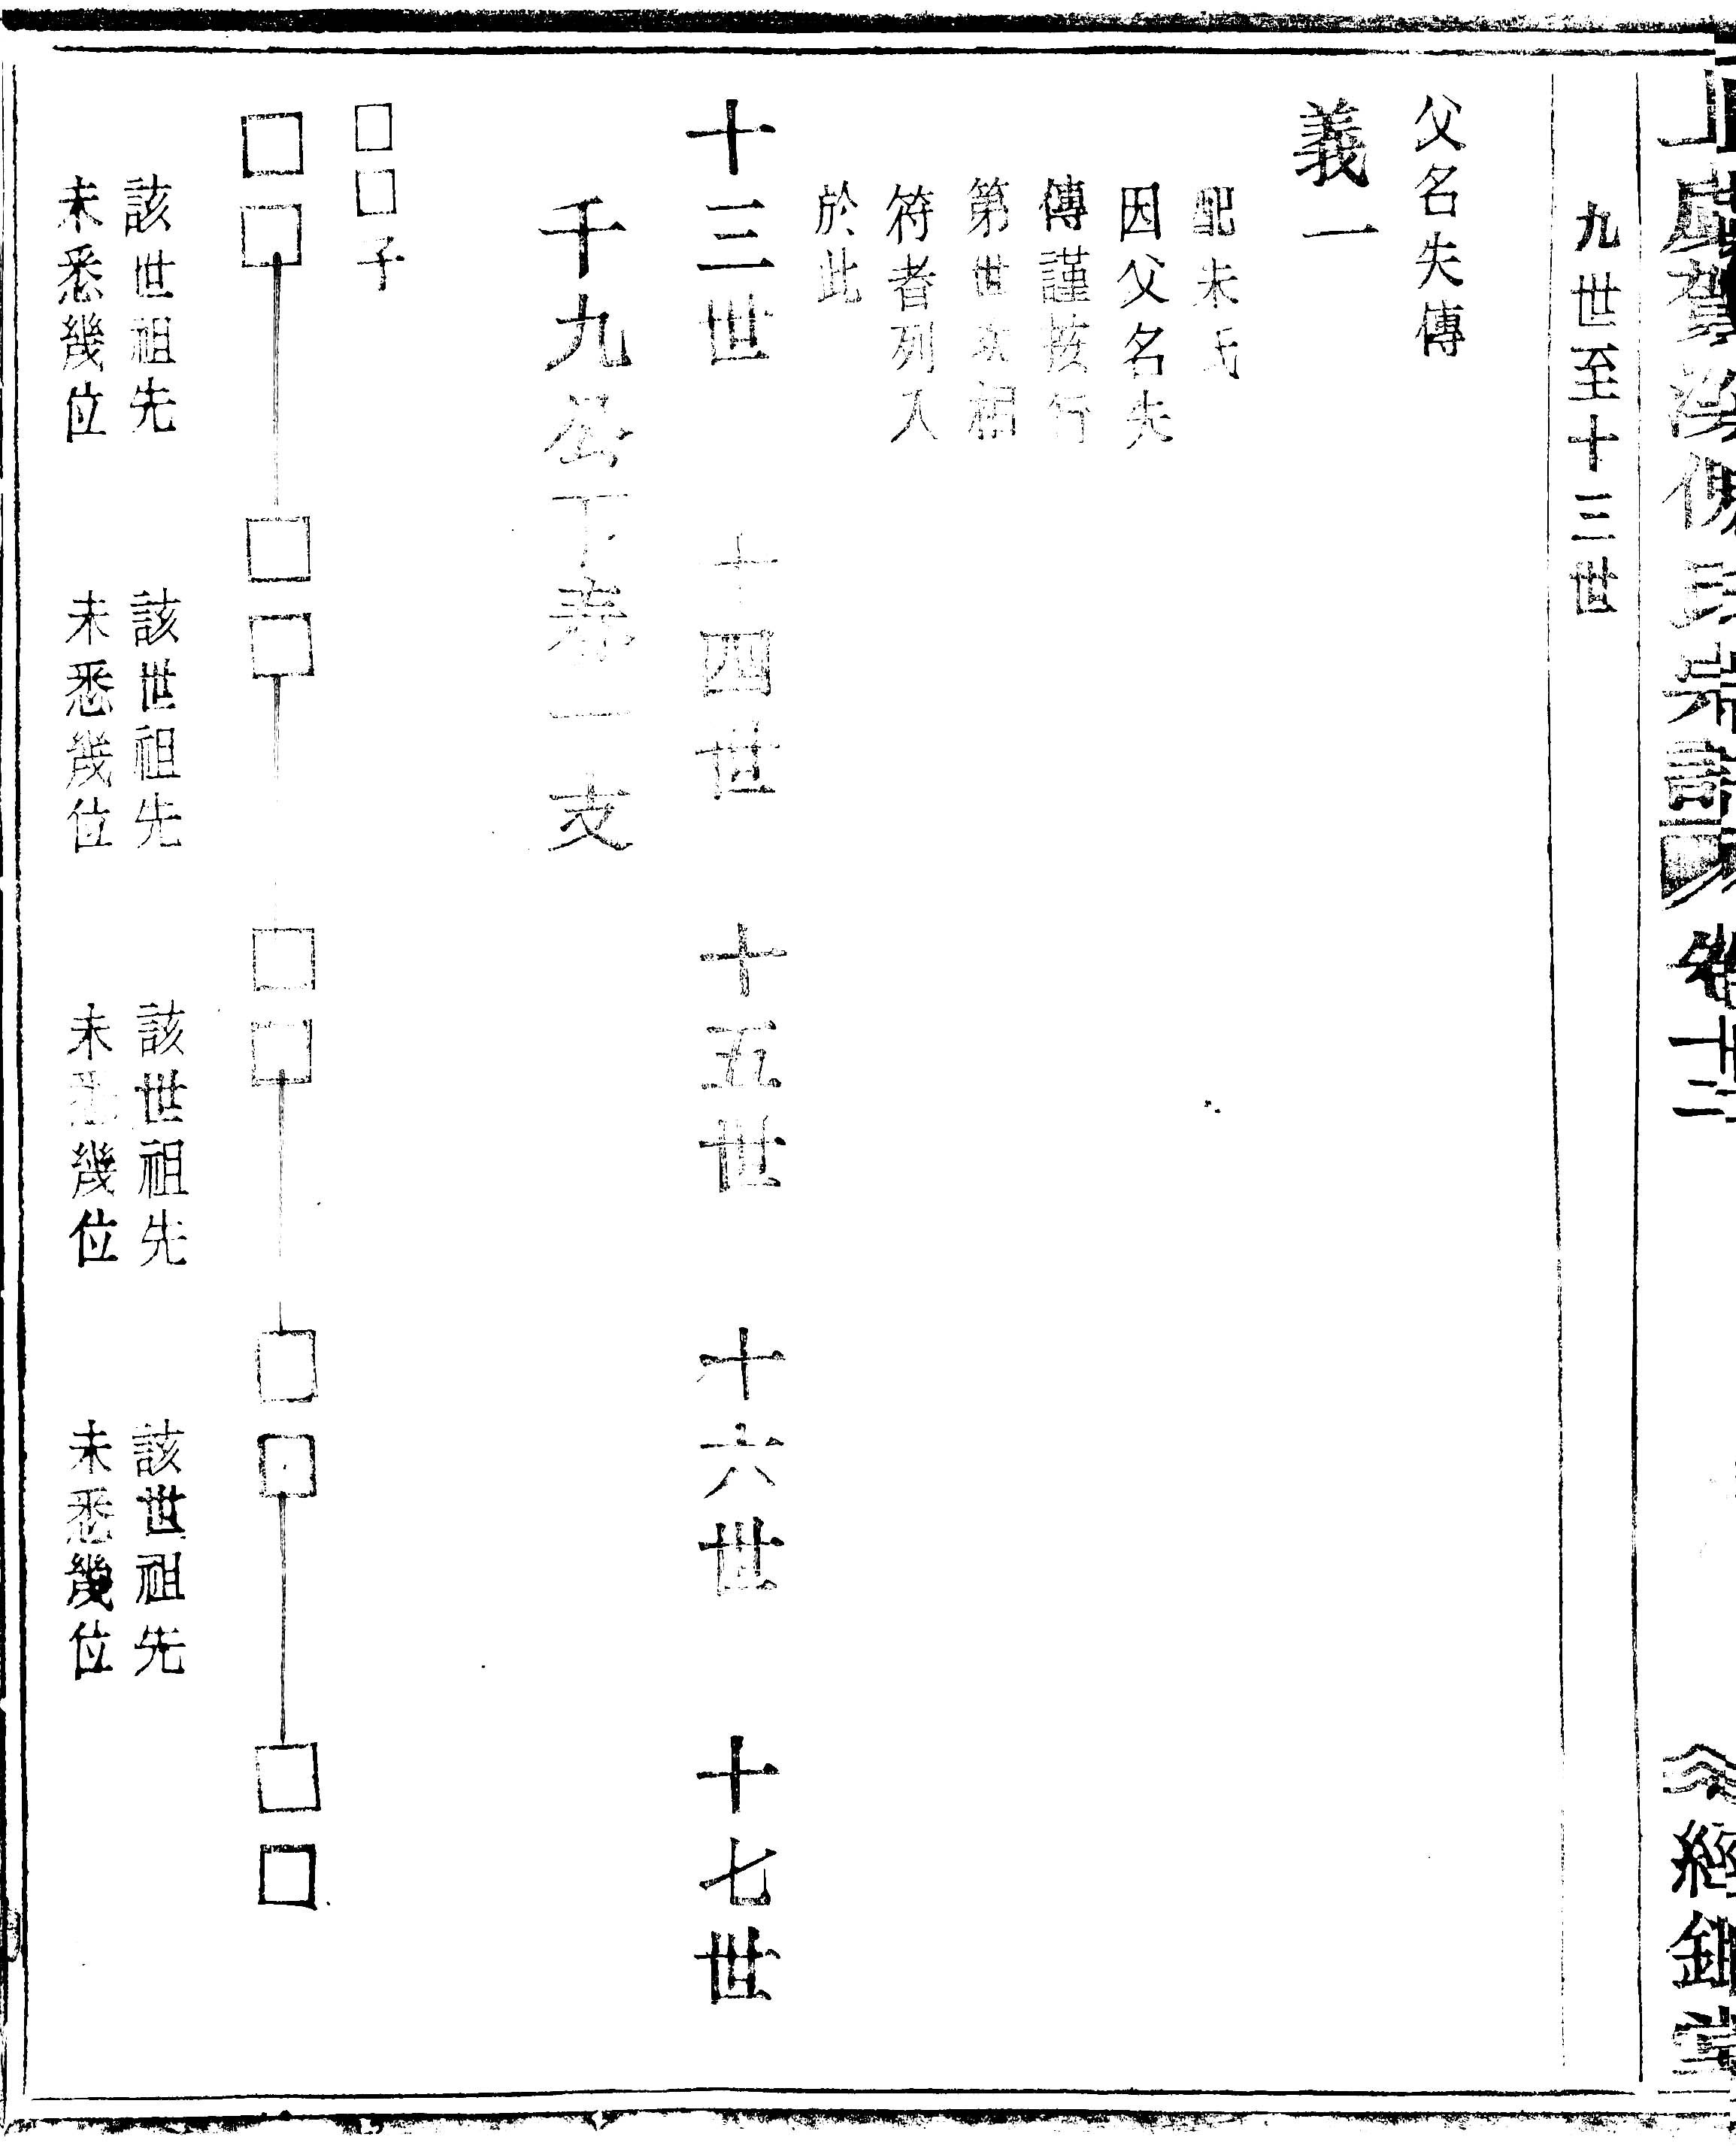 卷十三
經鉏堂
九世至十三世
父名失傳
義一
配朱氏
因父名失
傳謹按行
第世次相
符者列入
於此
十三世
十四世
十五世
十六世
十七世
千九公下壽一支
□□子
□□
□□
□□
□□
□□
該世祖先
未悉幾位
該世祖先
未悉幾位
該世祖先
未悉幾位
該世祖先
未悉幾位